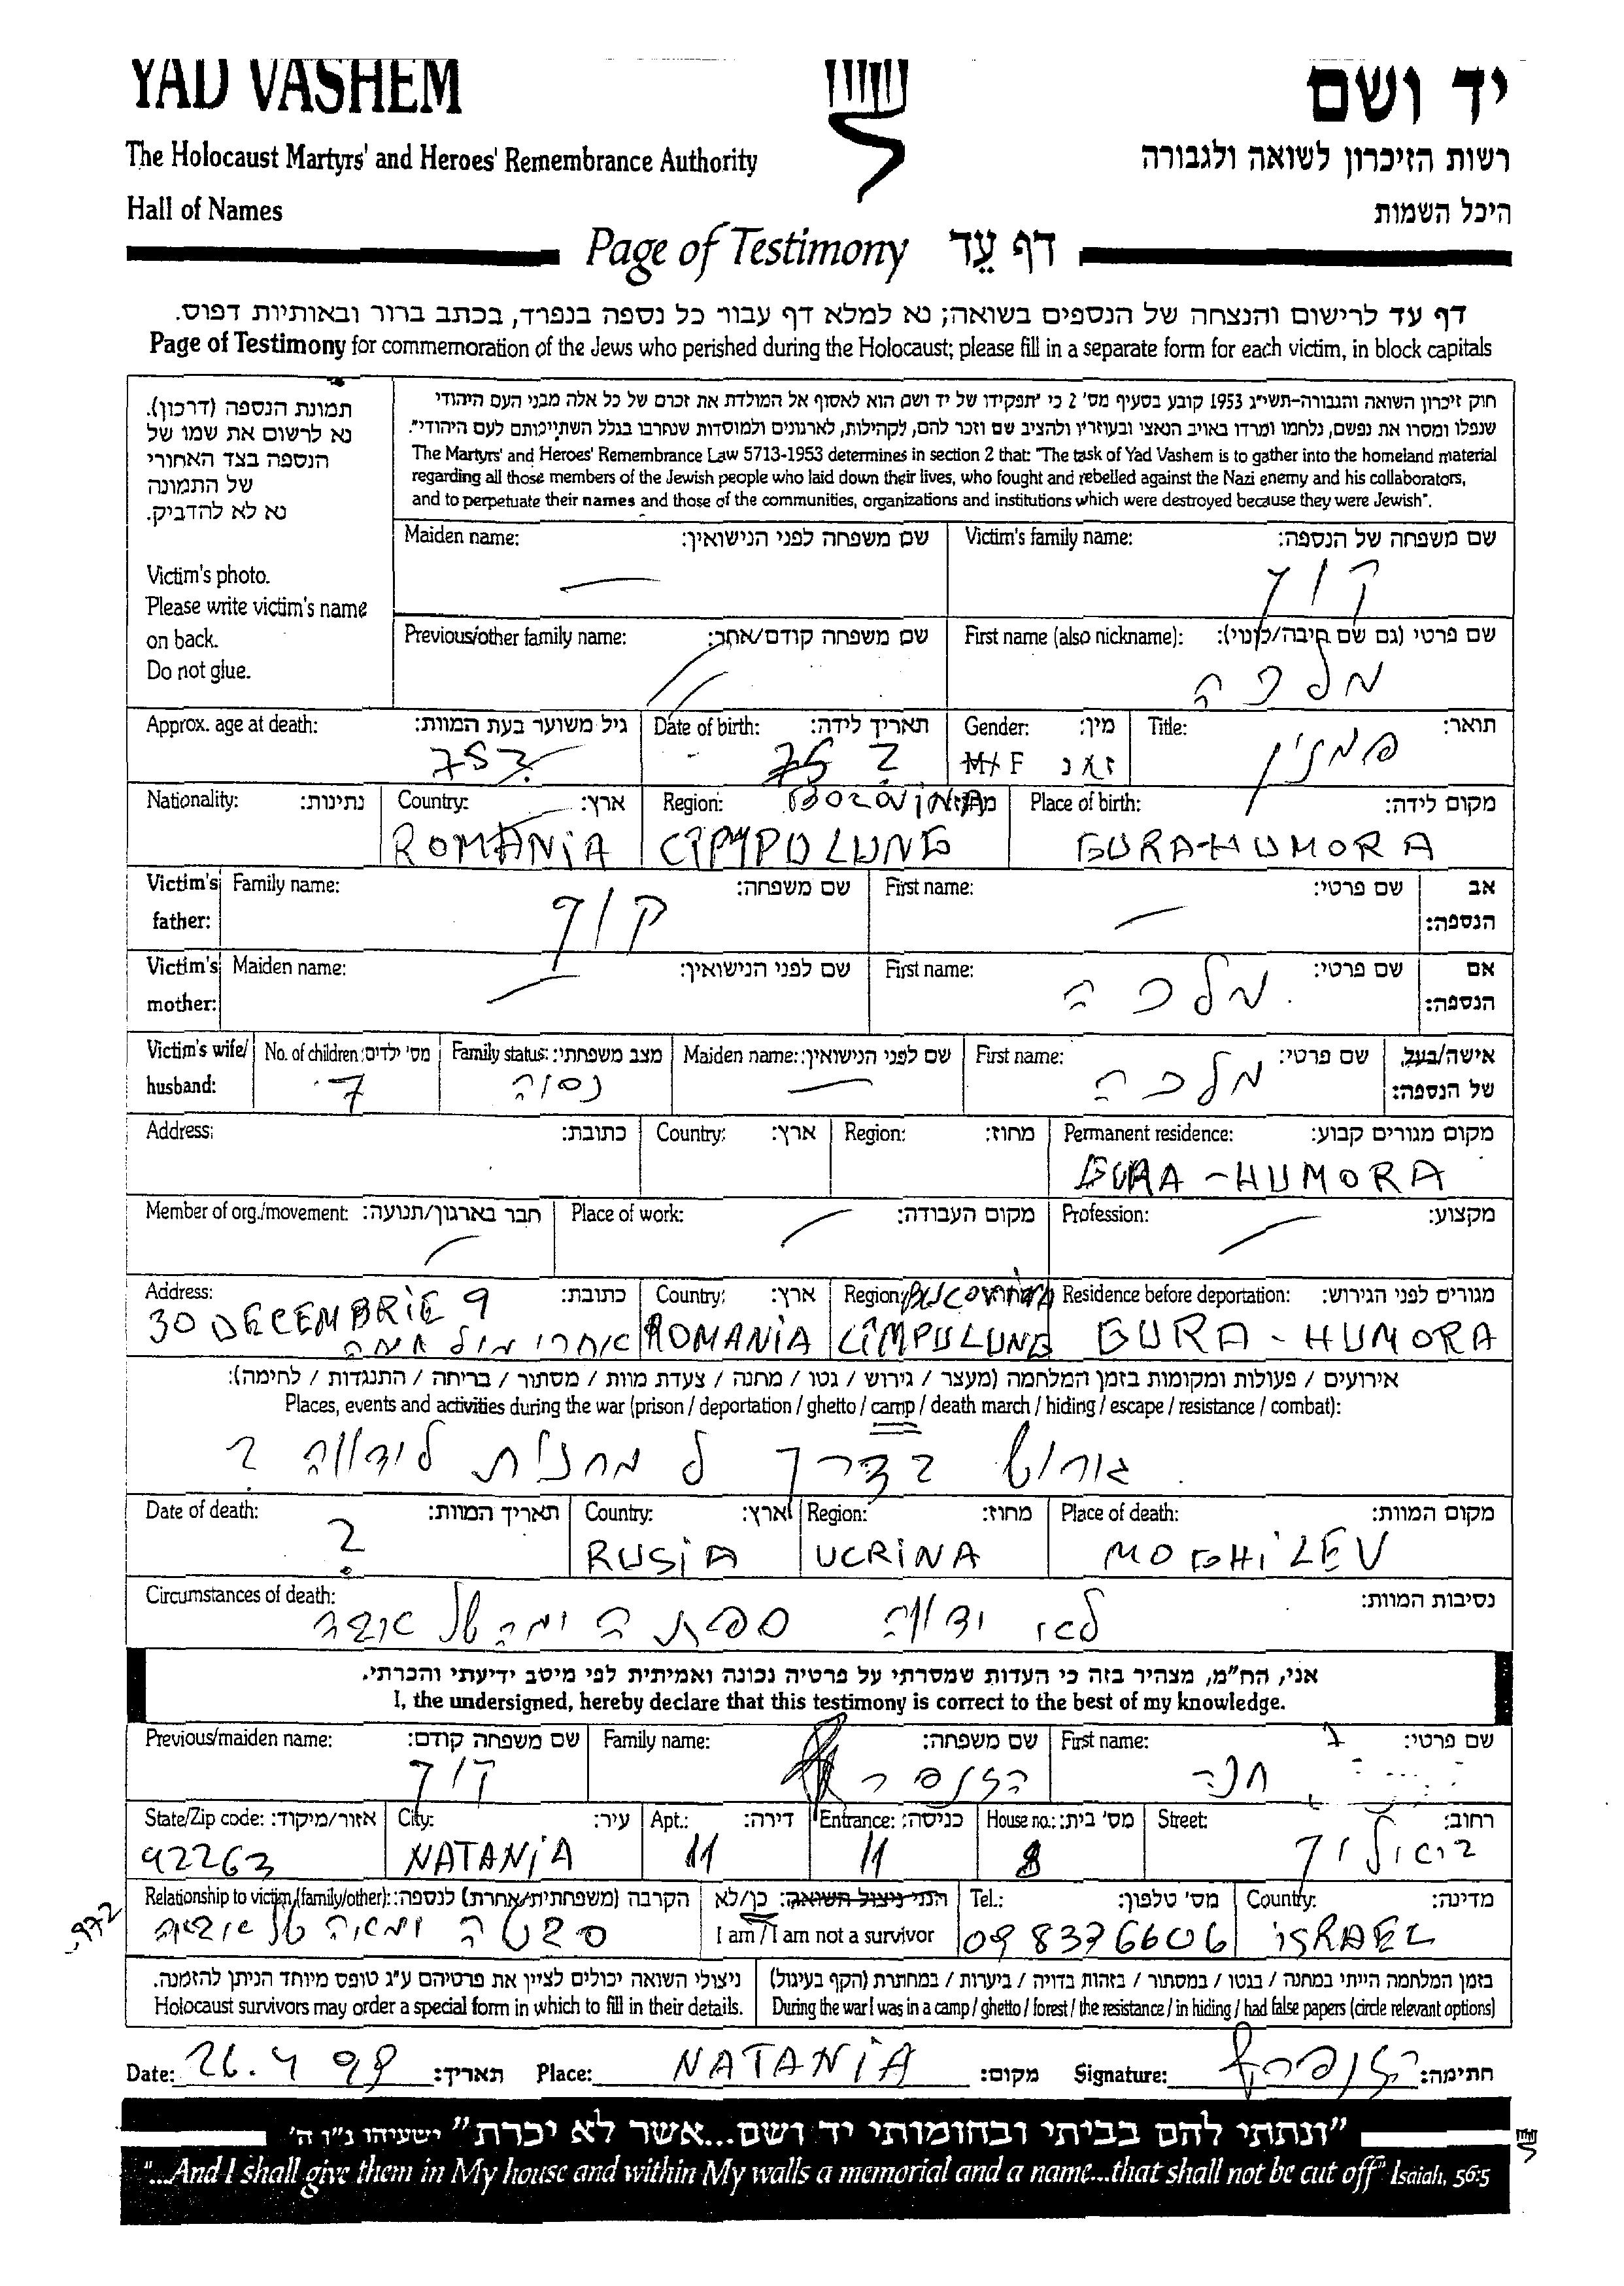 YAD VASHEM
יד ושם
The Holocaust Martyrs' and Heroes' Remembrance Authority
רשות הזיכרון לשואה ולגבורה
Hall of Names
היכל השמות
Page of Testimony דף עֵד
דף עד לרישום והנצחה של הנספים בשואה; נא למלא דף עבור כל נספה בנפרד, בכתב ברור ובאותיות דפוס.
Page of Testimony for commemoration of the Jews who perished during the Holocaust; please fill in a separate form for each victim, in block capitals
תמונת הנספה (דרכון).
נא לרשום את שמו של
הנספה בצד האחורי
של התמונה
נא לא להדביק.
Victim's photo.
Please write victim's name
on back.
Do not glue.
חוק זיכרון השואה והגבורה-תשי"ג 1953 קובע בסעיף מס' 2 כי "תפקידו של יד ושם הוא לאסוף אל המולדת את זכרם של כל אלה מבני העם היהודי
שנפלו ומסרו את נפשם, נלחמו ומרדו באויב הנאצי ובעוזריו ולהציב שם וזכר להם, לקהילות, לארגונים ולמוסדות שנחרבו בגלל השתייכותם לעם היהודי".
The Martyrs' and Heroes' Remembrance Law 5713-1953 determines in section 2 that: "The task of Yad Vashem is to gather into the homeland material
regarding all those members of the Jewish people who laid down their lives, who fought and rebelled against the Nazi enemy and his collaborators,
and to perpetuate their names and those of the communities, organizations and institutions which were destroyed because they were Jewish".
Maiden name: שם משפחה לפני הנישואין: Victim's family name: שם משפחה של הנספה:
קוך
Previous/other family name: שם משפחה קודם/אחר: First name (also nickname): שם פרטי (גם שם חיבה/כינוי):
מלכה
Approx. age at death: גיל משוער בעת המוות: Date of birth: תאריך לידה: Gender: מין: Title: תואר:
75? 75 ? M/F זא נ
Nationality: נתינות: Country: ארץ: Region: מחוז: Place of birth: מקום לידה:
ROMANIA CÎMPULUNG GURA-HUMORA
Victim's father: Family name: שם משפחה: First name: שם פרטי: אב הנספה:
קוך
Victim's mother: Maiden name: שם לפני הנישואין: First name: שם פרטי: אם הנספה:
מלכה
Victim's wife/husband: No. of children: מס' ילדים: Family status: מצב משפחתי: Maiden name: שם לפני הנישואין: First name: שם פרטי: אישה/בעל של הנספה:
7 נסוה מלכה
Address: כתובת: Country: ארץ: Region: מחוז: Permanent residence: מקום מגורים קבוע:
GURA-HUMORA
Member of org./movement: חבר בארגון/תנועה: Place of work: מקום העבודה: Profession: מקצוע:
Address: כתובת: Country: ארץ: Region: מחוז: Residence before deportation: מגורים לפני הגירוש:
BUCOVINA
30 DECEMBRIE 9 ROMANIA CÎMPULUNG GURA-HUMORA
אירועים / פעולות ומקומות בזמן המלחמה (מעצר / גירוש / גטו / מחנה / צעדת מוות / מסתור / בריחה / התנגדות / לחימה):
Places, events and activities during the war (prison / deportation / ghetto / camp / death march / hiding / escape / resistance / combat):
גורוש בדרך ל מחנות לידווה ?
Date of death: תאריך המוות: Country: ארץ: Region: מחוז: Place of death: מקום המוות:
? RUSIA UCRINA MOGHILEV
Circumstances of death: נסיבות המוות:
לא ידווה
אני, הח"מ, מצהיר בזה כי העדות שמסרתי על פרטיה נכונה ואמיתית לפי מיטב ידיעתי והכרתי.
I, the undersigned, hereby declare that this testimony is correct to the best of my knowledge.
Previous/maiden name: שם משפחה קודם: Family name: שם משפחה: First name: שם פרטי:
קוך חנה
State/Zip code: אזור/מיקוד: City: עיר: Apt.: דירה: Entrance: כניסה: House no.: מס' בית: Street: רחוב:
42263 NATANIA 11 11 8
Relationship to victim (family/other): הקרבה (משפחתית/אחרת) לנספה: הנני ניצול השואה: כן/לא Tel.: מס' טלפון: Country: מדינה:
סבטה I am / I am not a survivor 09 8336606 ISRAEL
972
ניצולי השואה יכולים לציין את פרטיהם ע"ג טופס מיוחד הניתן להזמנה.
Holocaust survivors may order a special form in which to fill in their details.
בזמן המלחמה הייתי במחנה / בגטו / במסתור / בזהות בדויה / ביערות / במחתרת (הקף בעיגול)
During the war I was in a camp / ghetto / forest / the resistance / in hiding / had false papers (circle relevant options)
Date: 26.4 99 תאריך: Place: NATANIA מקום: Signature: חתימה:
"ונתתי להם בביתי ובחומותי יד ושם...אשר לא יכרת" ישעיהו נ"ו ה'
"...And I shall give them in My house and within My walls a memorial and a name...that shall not be cut off" Isaiah, 56:5